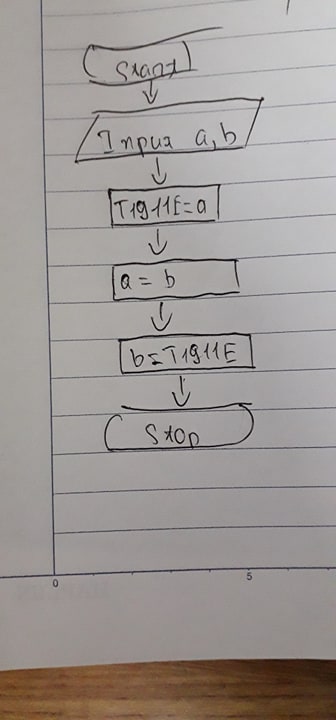 Start
Input a, b
T1911E=a
a = b
b=T1911E
Stop
0 5